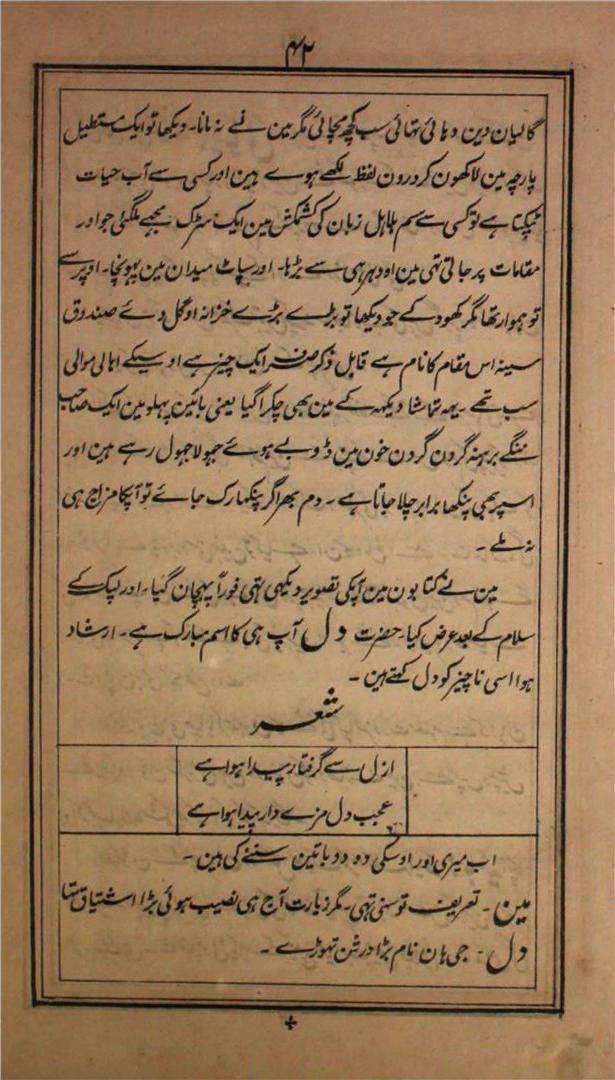 ۴۲
گالیان دین دہائی تہائی سب کچھ مچائی مگر مین نے نہ مانا۔ دیکھا تو ایک مستطیل
پارچہ مین لاکھون کرورون لفظ لکھے ہوے ہین اور کسی سے آب حیات
ٹپکتا ہے تو کسی سے سم ہلاہل زبان کی کشمکش مین ایک سڑک مجھے ملگئی جو اور
مقامات پر جاتی تہی مین اودہر ہی سے بڑہا۔ اور سپاٹ میدان مین پہونچا۔ اوپر سے
تو ہموار تھا مگر کھود کے جو دیکھا تو بڑے بڑے خزانہ اوگل دئے صندوق
سینہ اس مقام کا نام ہے قابل ذکر صرف ایک چیز ہے اوسیکے اہالی موالی
سب تھے۔ یہہ تماشا دیکہہ کے مین بھی چکرا گیا یعنی بائین پہلو مین ایک صاحب
ننگے برہنہ گردن گردن خون مین ڈوبے ہوئے جہولا جہول رہے ہین اور
اسپر بھی پنکھا برابر چلا جاتا ہے۔ دم بھر اگر پنکہا رک جائے تو آپکا مزاج ہی
نہ ملے۔
مین نے کتابون مین آپکی تصویر دیکہی تہی فوراً پہچان گیا۔ اور لپک کے
سلام کے بعد عرض کیا۔ حضرت دل آپ ہی کا اسم مبارک ہے۔ ارشاد
ہوا اسی ناچیز کو دل کہتے ہین۔
شعر
ازل سے گرفتار پیدا ہوا ہے
عجب دل مزے دار پیدا ہوا ہے
اب میری اور اوسکی دو دو باتین سننے کی ہین۔
مین۔ تعریف تو سنی تہی۔ مگر زیارت آج ہی نصیب ہوئی بڑا اشتیاق تہا
دل۔ جی ہان نام بڑا درشن تہوڑے۔